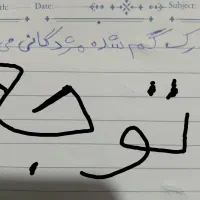 Date: Subject:
رک گم شده مژدگانی می
توجه